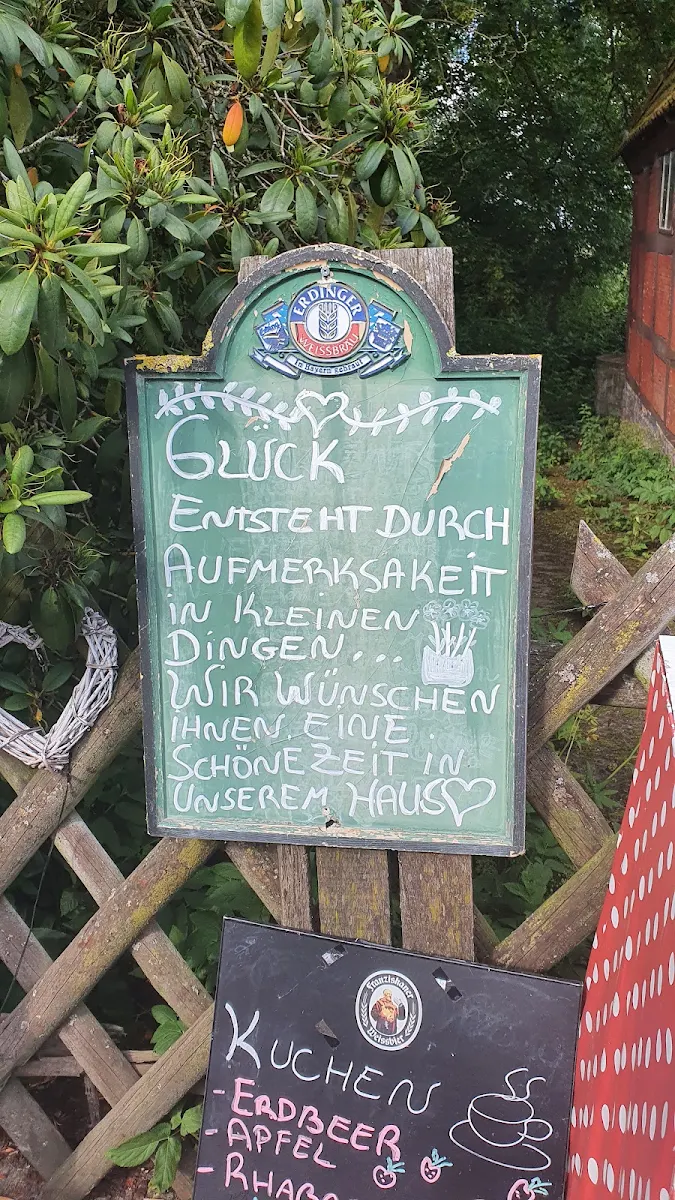 ERDINGER
WEISSBRÄU
In Bayern gebraut
GLÜCK
ENTSTEHT DURCH
AUFMERKSAKEIT
IN KLEINEN
DINGEN...
WIR WÜNSCHEN
IHNEN EINE
SCHÖNE ZEIT IN
UNSEREM HAUS
Franziskaner
Weissbier
KUCHEN
- ERDBEER
- APFEL
- RHABA